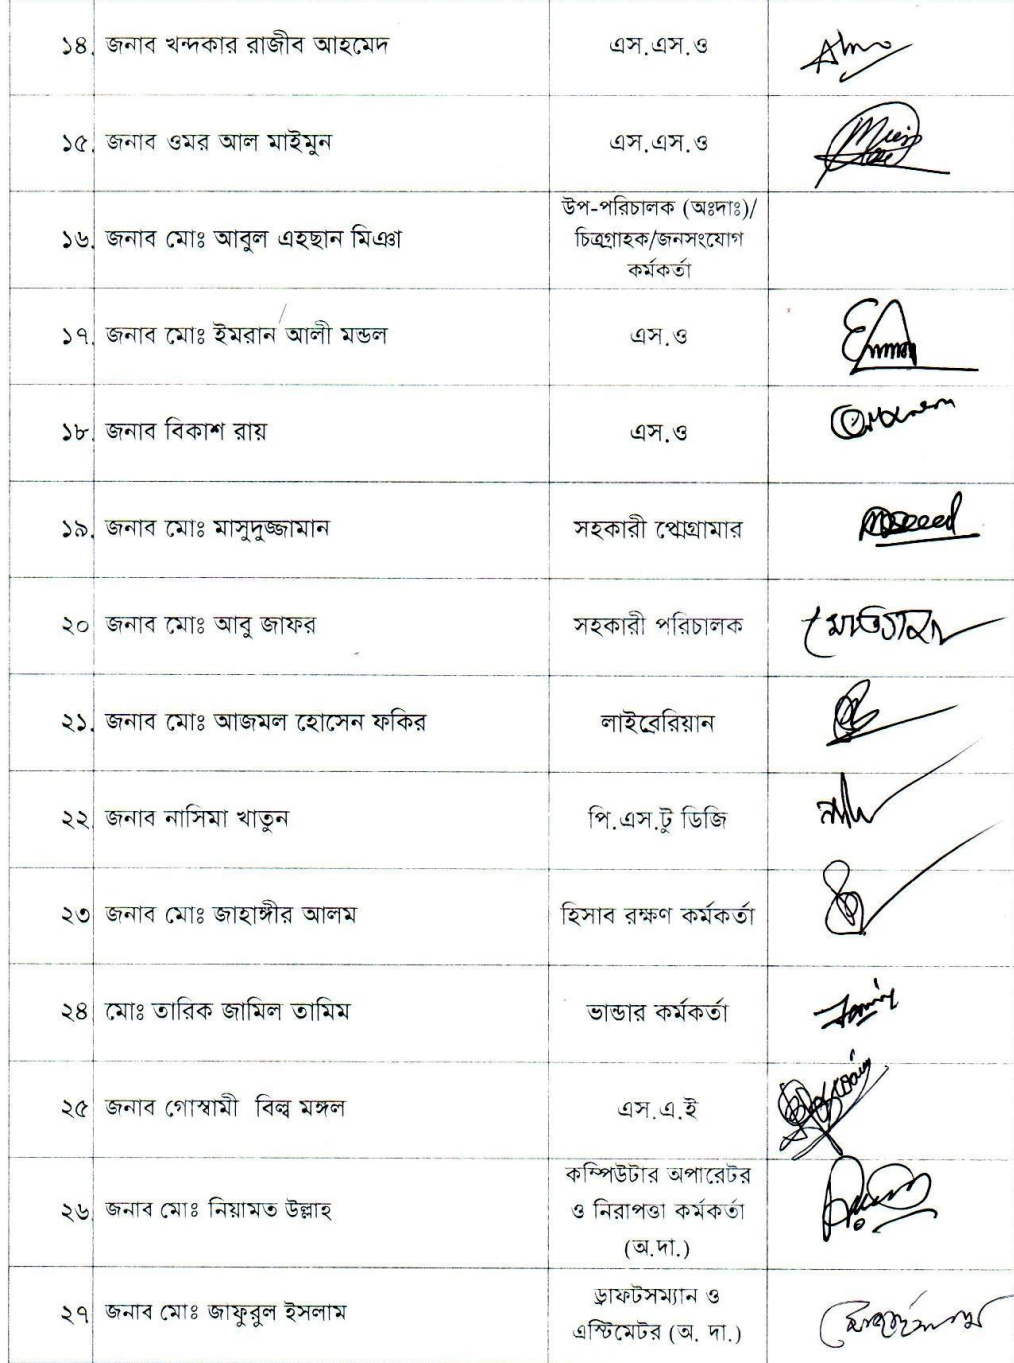 ১৪. জনাব খন্দকার রাজীব আহমেদ এস.এস.ও
১৫. জনাব ওমর আল মাইমুন এস.এস.ও
উপ-পরিচালক (অঃদাঃ)/
১৬. জনাব মোঃ আবুল এহছান মিঞা চিত্রগ্রাহক/জনসংযোগ
কর্মকর্তা
১৭. জনাব মোঃ ইমরান আলী মন্ডল এস.ও
১৮. জনাব বিকাশ রায় এস.ও
১৯. জনাব মোঃ মাসুদুজ্জামান সহকারী প্রোগ্রামার
২০ জনাব মোঃ আবু জাফর সহকারী পরিচালক
২১. জনাব মোঃ আজমল হোসেন ফকির লাইব্রেরিয়ান
২২. জনাব নাসিমা খাতুন পি.এস.টু ডিজি
২৩ জনাব মোঃ জাহাঙ্গীর আলম হিসাব রক্ষণ কর্মকর্তা
২৪ মোঃ তারিক জামিল তামিম ভান্ডার কর্মকর্তা
২৫ জনাব গোস্বামী বিল্ব মঙ্গল এস.এ.ই
কম্পিউটার অপারেটর
২৬. জনাব মোঃ নিয়ামত উল্লাহ ও নিরাপত্তা কর্মকর্তা
(অ.দা.)
ড্রাফটসম্যান ও
২৭ জনাব মোঃ জাফুরুল ইসলাম
এস্টিমেটর (অ. দা.)